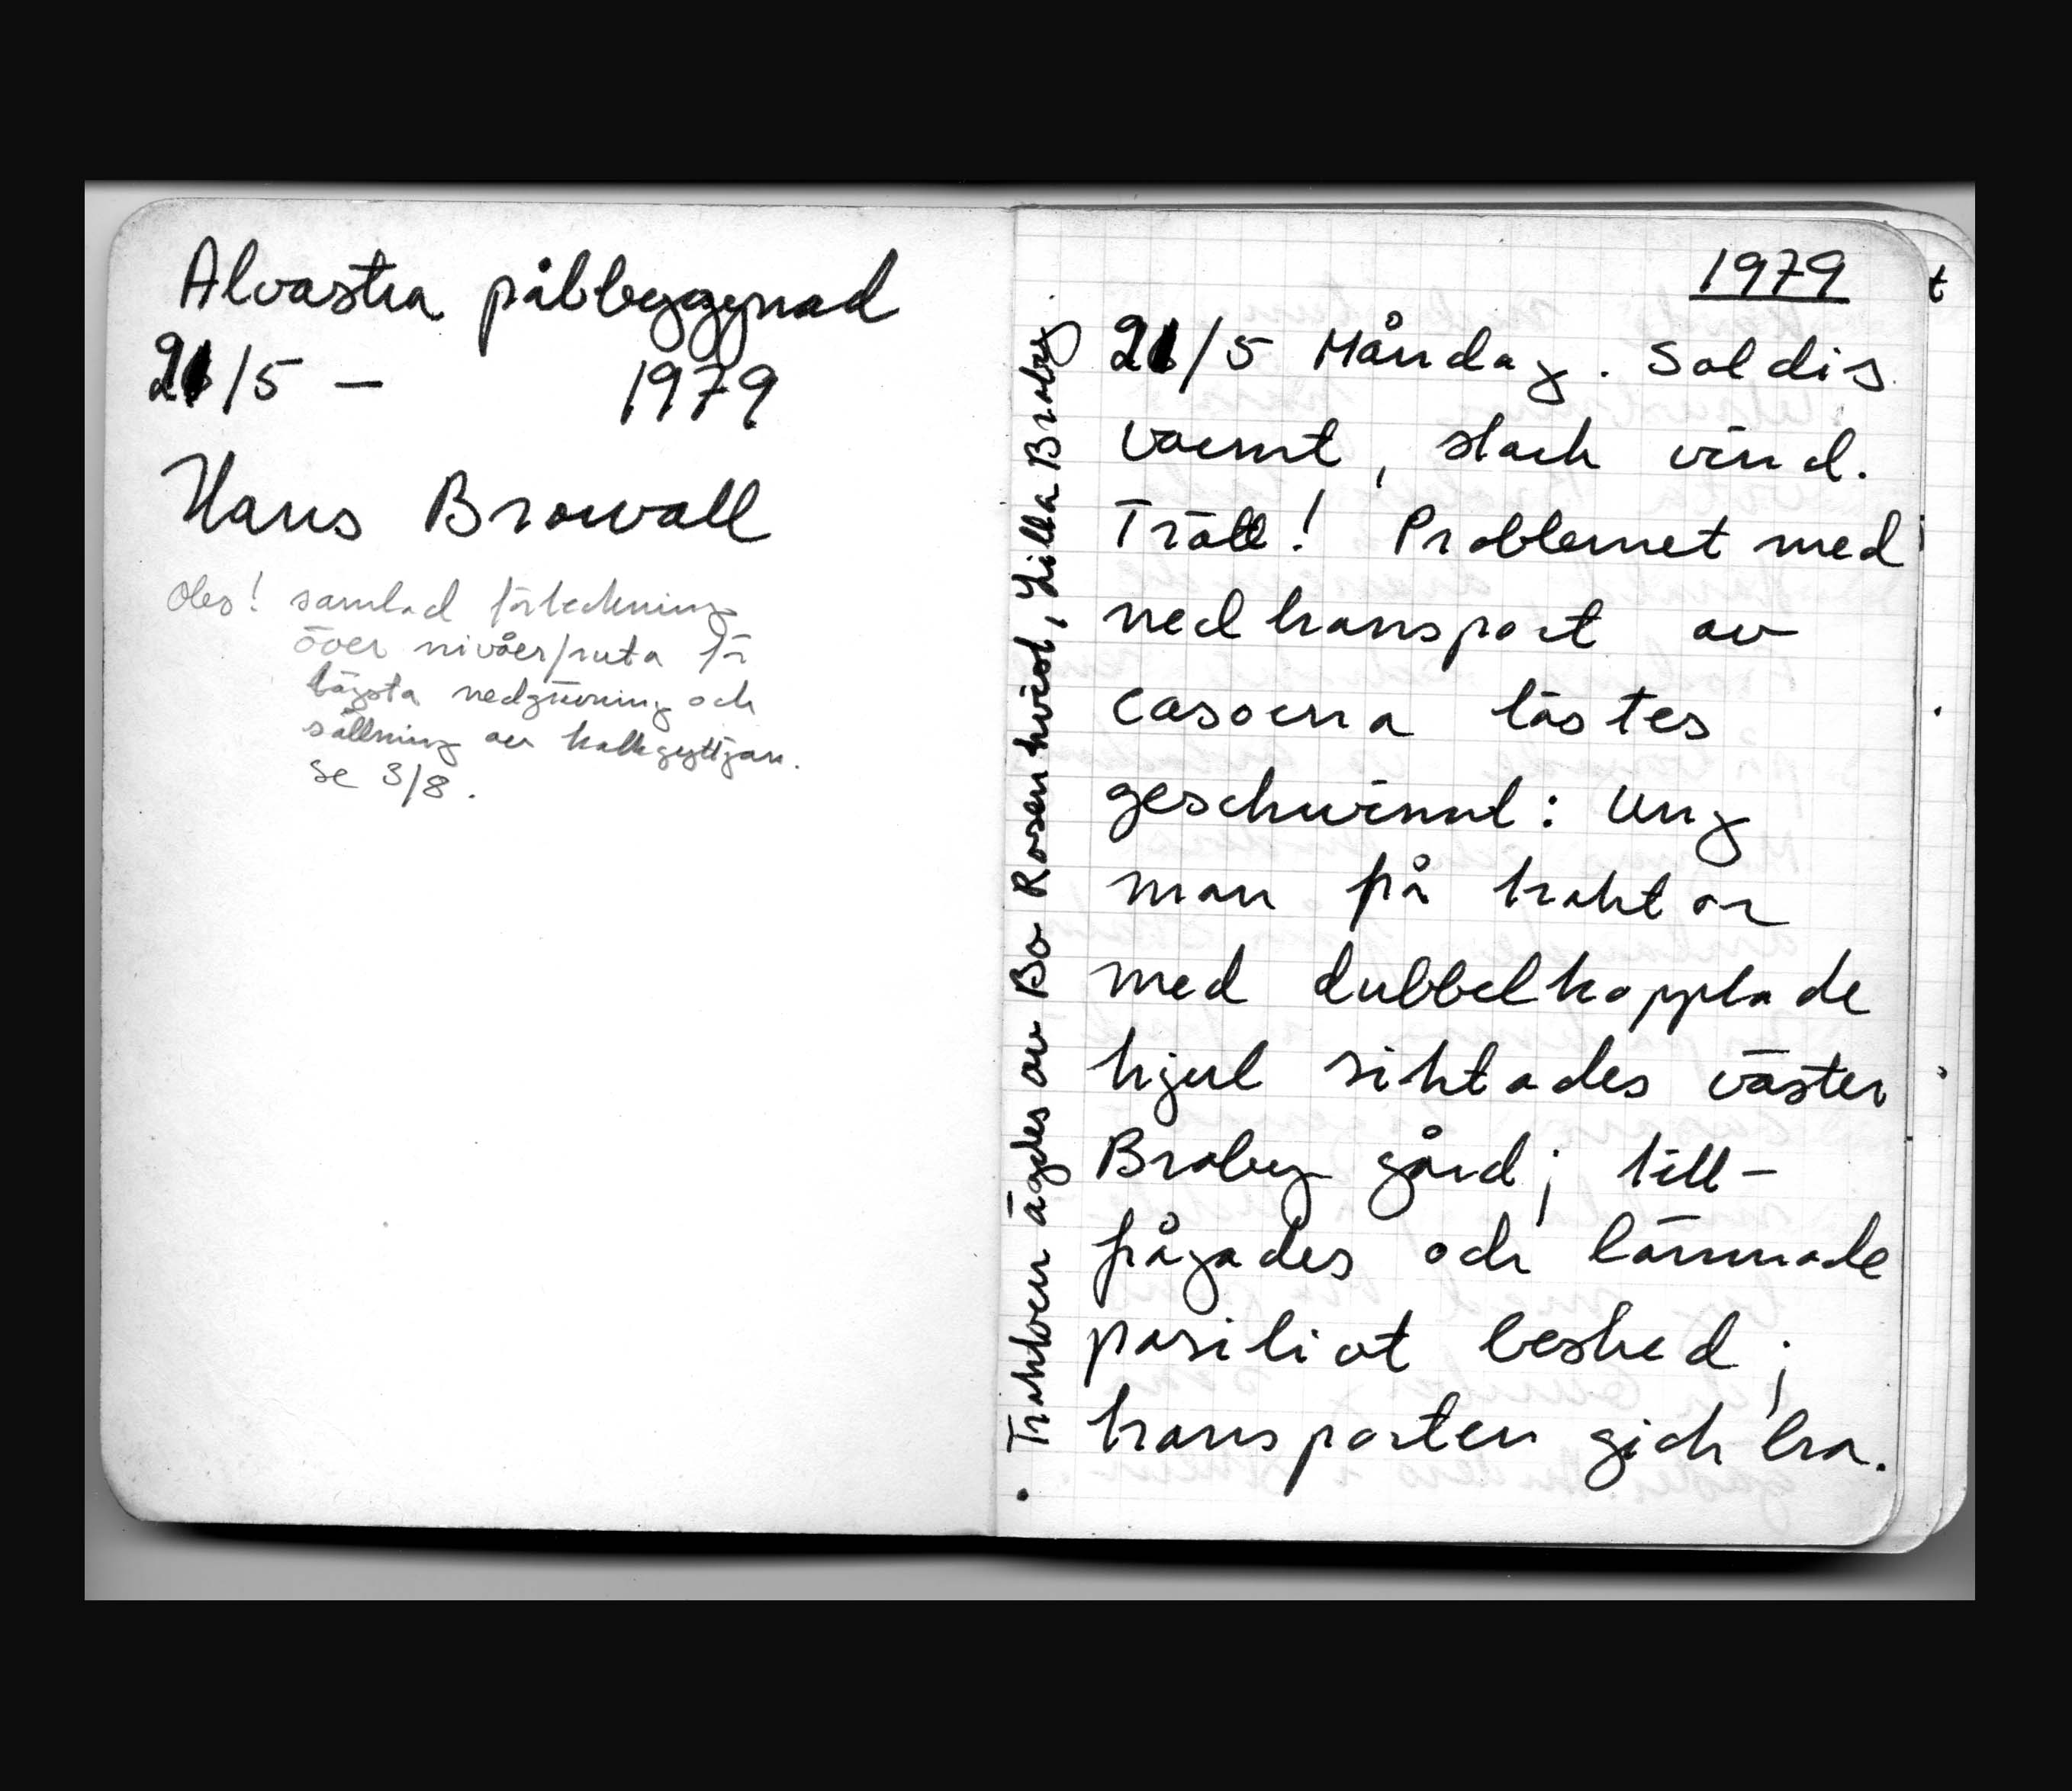 Alvastra pålbyggnad
21/5 – 1979
Hans Browall
Obs! samlad förteckning
över nivåer/ruta för
lägsta nedgrävning och
sållning av kalkgyttjan.
se 3/8.
1979
21/5 Måndag. Soldis
varmt, svach vind.
Trött! Problemet med
nedtransport av
casarna löstes
geschwinnt: Ung
man på traktor
med dubbelkopplade
hjul siktades väster
Broby gård; till-
frågades och lämnade
positivt besked;
transporten gick bra.
Traktorn ägdes av Bo Rosenkvist, Lilla Broby